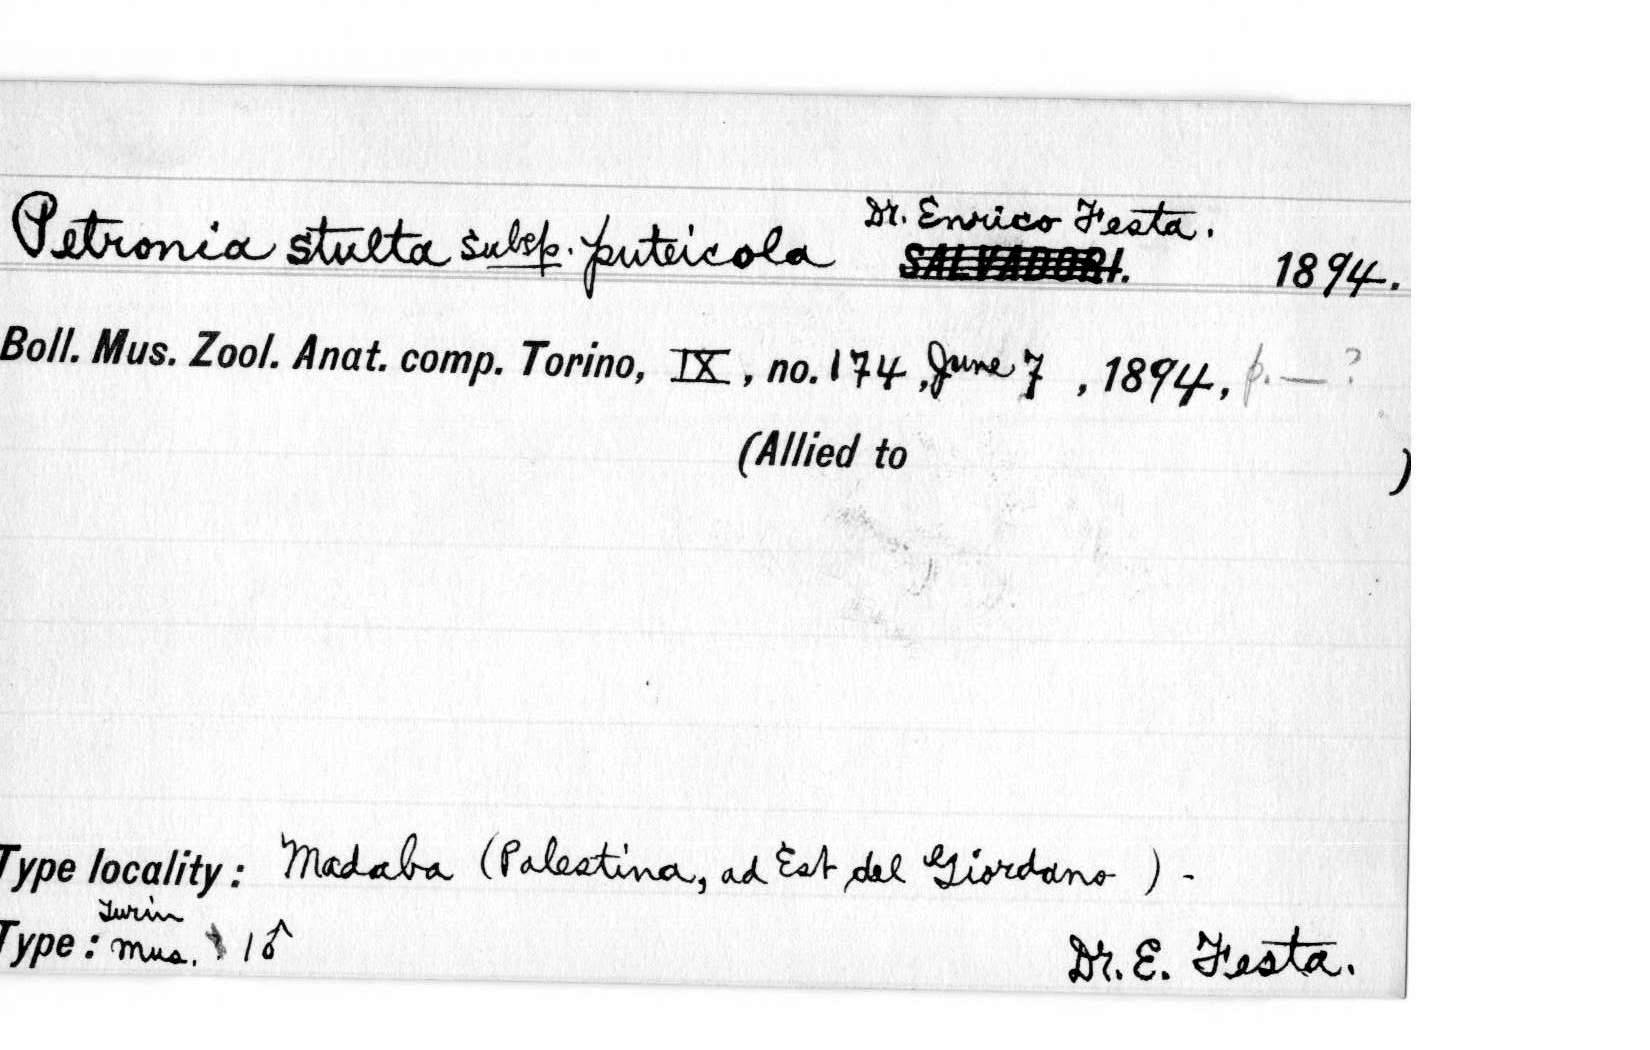 Dr. Enrico Festa.
Petronia stulta subsp. puteicola SALVADORI. 1894.
Boll. Mus. Zool. Anat. comp. Torino, IX, no. 174, June 7, 1894, p. — ?
(Allied to )
Type locality: Madaba (Palestina, ad Est del Giordano) -
Turin
Type: Mus. 1♂
Dr. E. Festa.